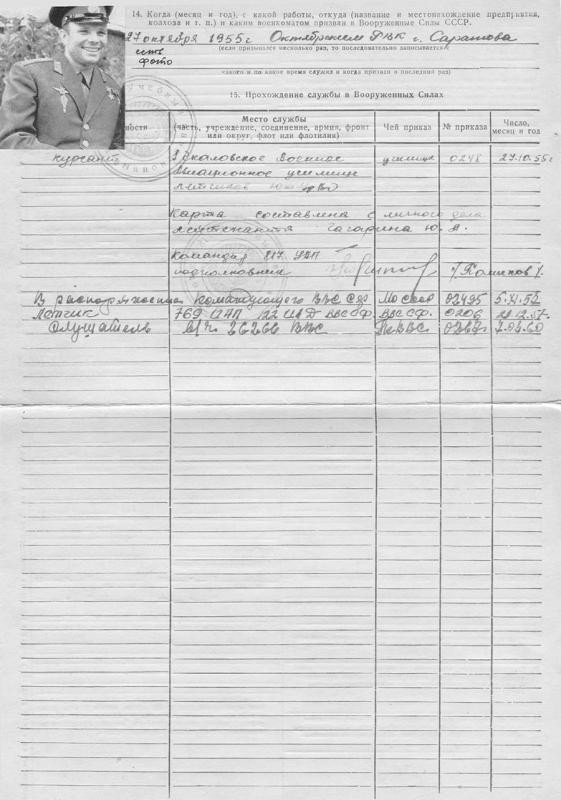 14. Когда (месяц и год), с какой работы, откуда (название и местонахождение предприятия,
колхоза и т. п.) и каким военкоматом призван в Вооруженные Силы СССР.
27 октября 1955 г. Октябрьским РВК г. Саратова
(если призывался несколько раз, то последовательно записывается)
есть
фото
какого и по какое время служил и когда призван в последний раз)
15. Прохождение службы в Вооруженных Силах
ности
Место службы
(часть, учреждение, соединение, армия, фронт
или округ, флот или флотилия)
Чей приказ
№ приказа
Число,
месяц и год
курсант
Чкаловское Военное
училища
0248
27.10.55г
Авиационное училище
летчиков
Карта составлена с личного дела
лейтенанта Гагарина Ю. А.
Командир 217
подполковник
В распоряжении командующего ВВС СФ
МО СССР
02495
Летчик
769 ИАП 122 ИАД ВВС СФ.
ВВС СФ.
0206
29.12.57г.
Слушатель
в/ч 26266 ВВС
7.03.60